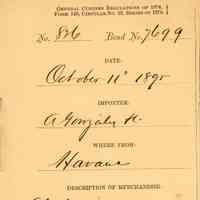 General Customs Regulations of 1874,
Form 149, Circular No. 32, Series of 1874
No. 826 Bond No. 7699
DATE:
October 11" 1890
IMPORTER:
A Gonzalez
WHERE FROM:
Havana
DESCRIPTION OF MERCHANDISE.